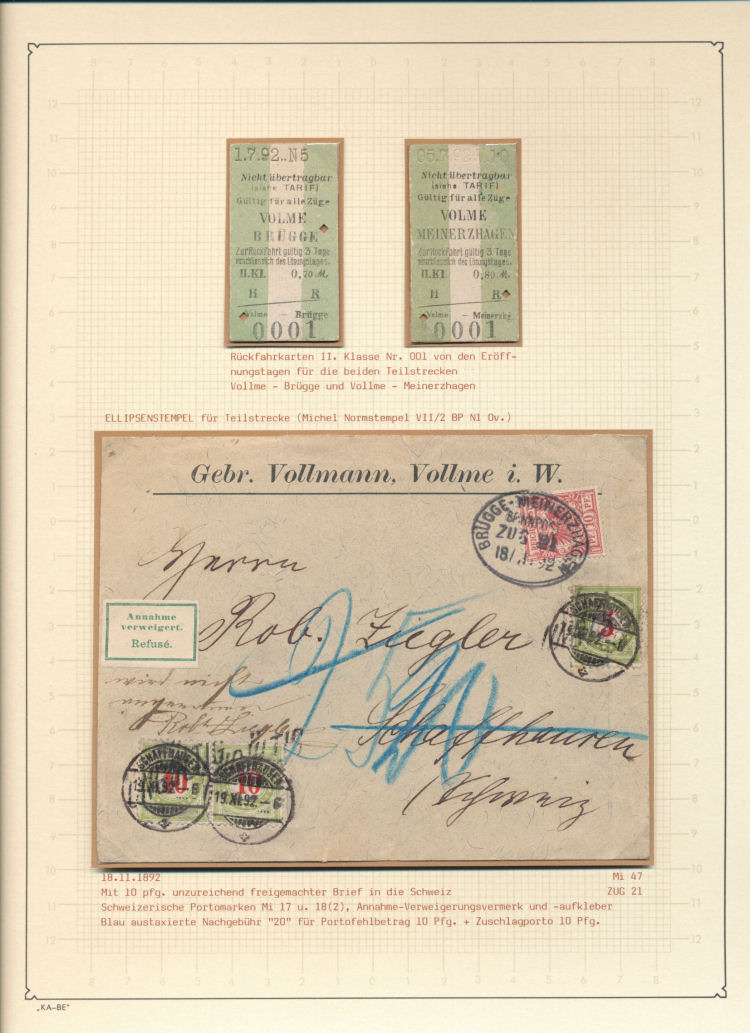 1.7.92..N5
Nicht übertragbar
(siehe TARIF)
Gültig für alle Züge
VOLME
BRÜGGE
Zur Rückfahrt gültig 3 Tage
einschliesslich des Lösungstages.
II.Kl. 0,70 M.
H R
Volme – Brügge
0001
Nicht übertragbar
(siehe TARIF)
Gültig für alle Züge
VOLME
MEINERZHAGEN
Zur Rückfahrt gültig 3 Tage
einschliesslich des Lösungstages.
II.Kl. 0,80 M.
H R
Volme – Meinerzhg
0001
Rückfahrkarten II. Klasse Nr. 001 von den Eröff-
nungstagen für die beiden Teilstrecken
Vollme - Brügge und Vollme - Meinerzhagen
ELLIPSENSTEMPEL für Teilstrecke (Michel Normstempel VII/2 BP Nl Ov.)
Gebr. Vollmann, Vollme i. W.
BRÜGGE-MEINERZHAGEN
BAHNPOST
ZUG 21
Herrn
Rob. Ziegler
Schaffhausen
(Schweiz
Annahme
verweigert.
Refusé.
25
20
SCHAFFHAUSEN
5
SCHAFFHAUSEN
10
SCHAFFHAUSEN
10
19.XI.92.–6
18.11.1892 Mi 47
Mit 10 pfg. unzureichend freigemachter Brief in die Schweiz ZUG 21
Schweizerische Portomarken Mi 17 u. 18(2), Annahme-Verweigerungsvermerk und -aufkleber
Blau austaxierte Nachgebühr "20" für Portofehlbetrag 10 Pfg. + Zuschlagporto 10 Pfg.
„KA-BE"